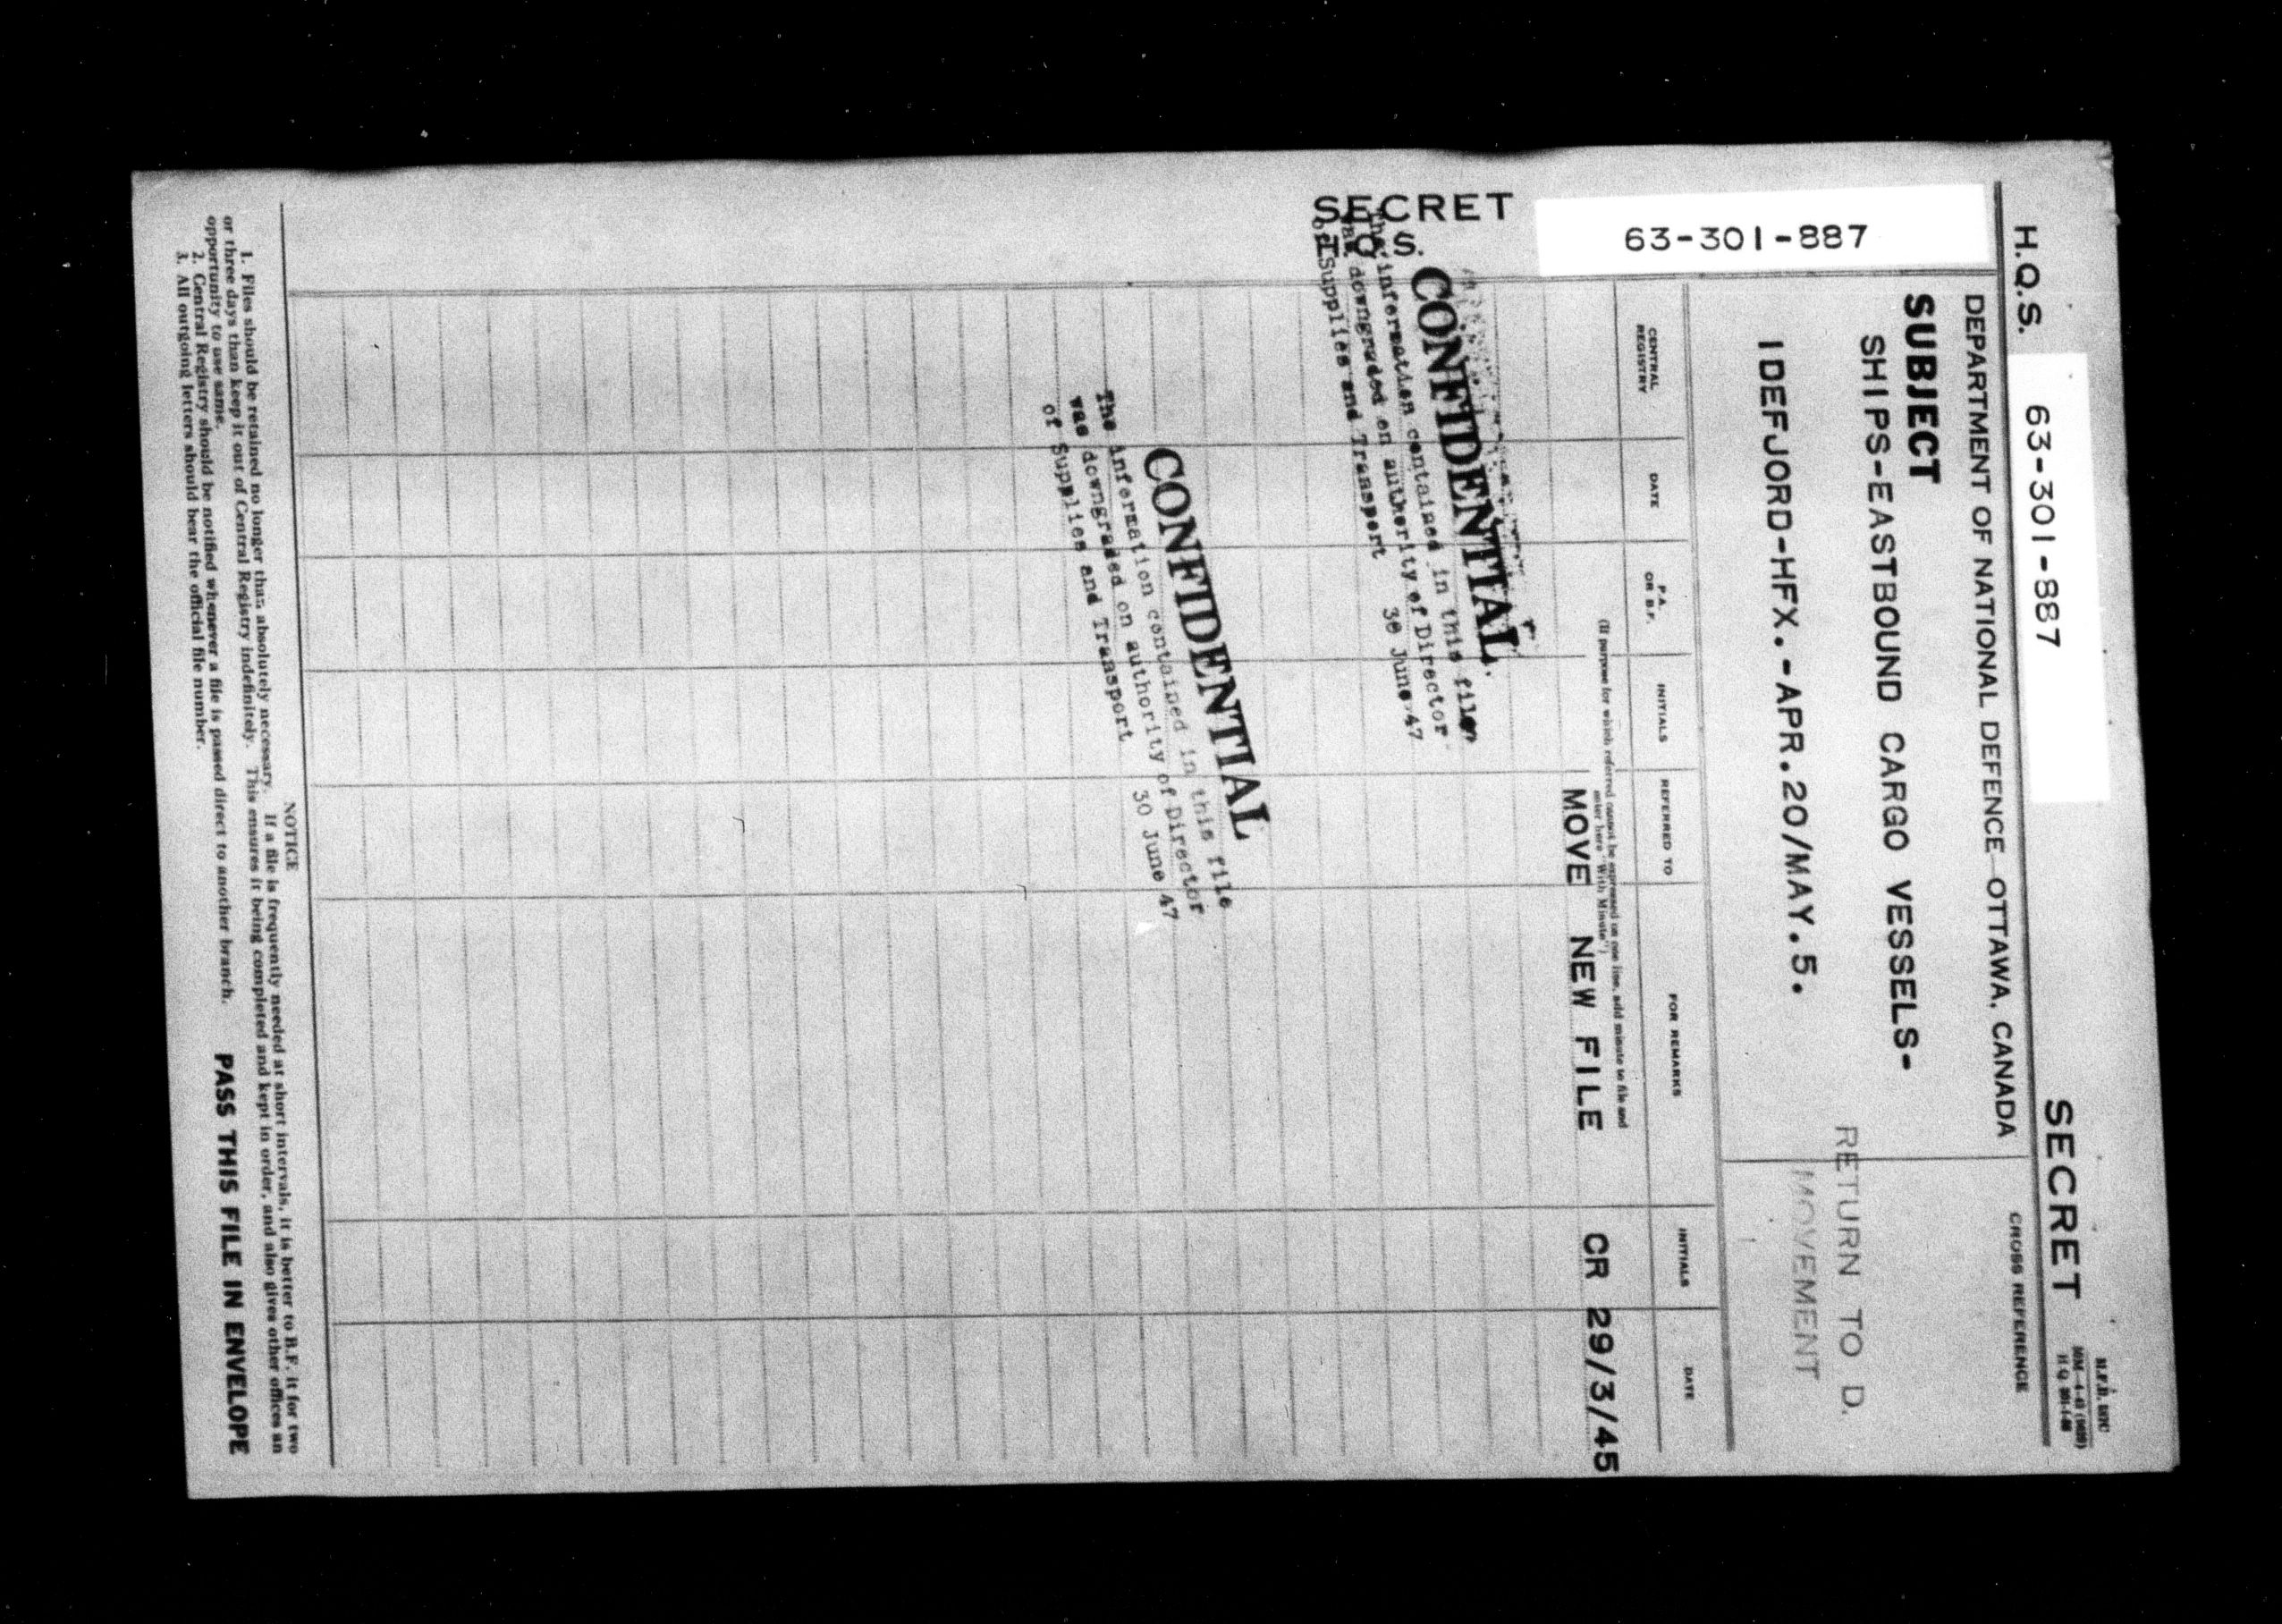 H.Q.S. 63-301-887 SECRET
DEPARTMENT OF NATIONAL DEFENCE OTTAWA, CANADA
CROSS REFERENCE
SUBJECT
SHIPS-EASTBOUND CARGO VESSELS-
IDEFJORD-HFX.-APR.20/MAY.5.
RETURN TO D.
MOVEMENT
63-301-887
SECRET
T.O.S.
CENTRAL REGISTRY DATE P.A. OR B.F. INITIALS REFERRED TO FOR REMARKS INITIALS DATE
(If purpose for which referred cannot be expressed on one line, add minute to file and
enter here "With Minute")
MOVE NEW FILE CR 29/3/45
CONFIDENTIAL
The information contained in this file
was downgraded on authority of Director
of Supplies and Transport 30 June 47
CONFIDENTIAL
The information contained in this file
was downgraded on authority of Director
of Supplies and Transport 30 June 47
NOTICE
1. Files should be retained no longer than absolutely necessary. If a file is frequently needed at short intervals, it is better to B.F. it for two
or three days than keep it out of Central Registry indefinitely. This ensures it being completed and kept in order, and also gives other offices an
opportunity to use same.
2. Central Registry should be notified whenever a file is passed direct to another branch.
3. All outgoing letters should bear the official file number.
PASS THIS FILE IN ENVELOPE